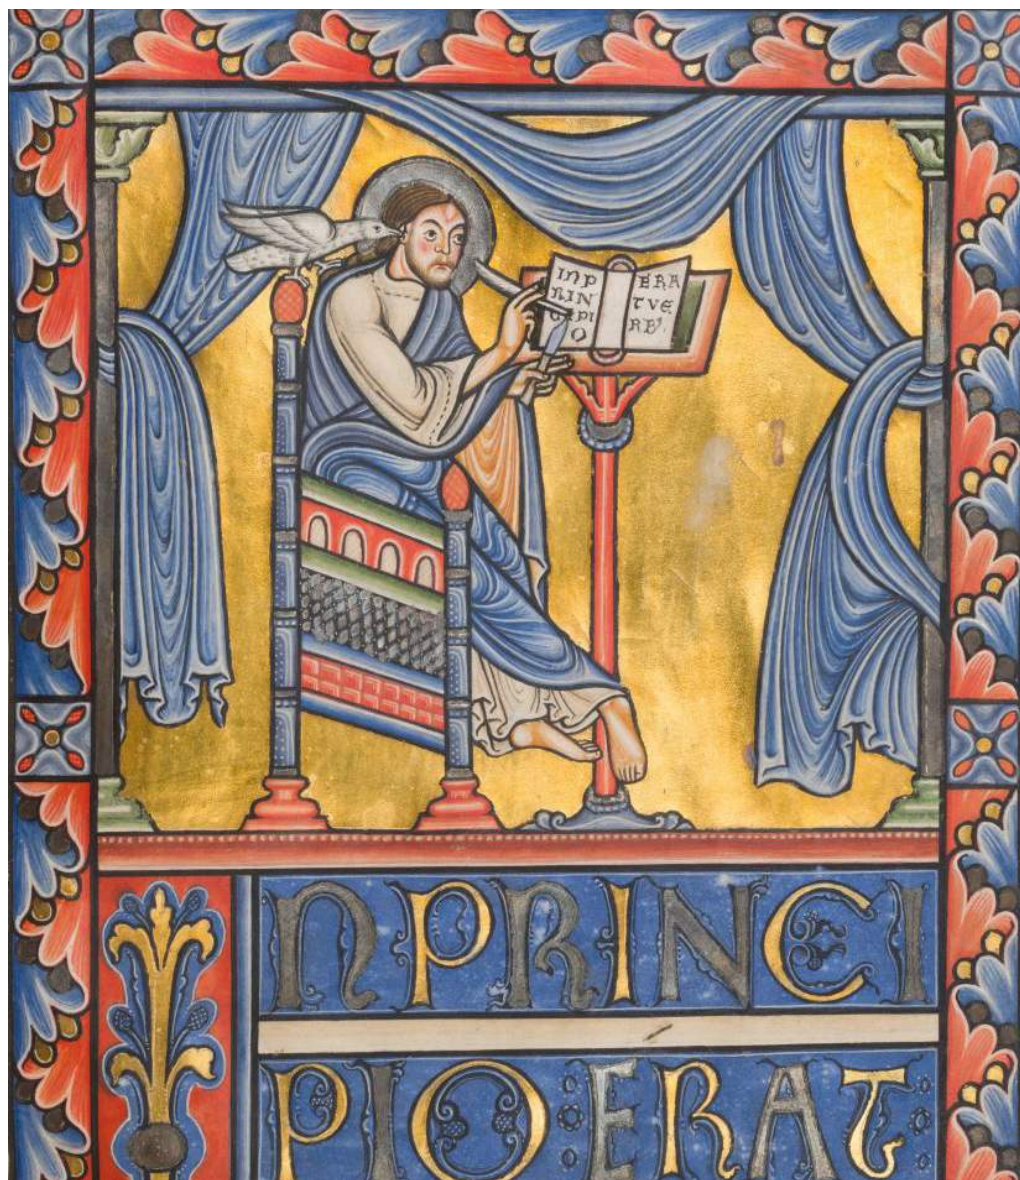 INP
RIN
CIPI
O
ERA
TVE
RB'.
IN PRINCI
PIO ERAT